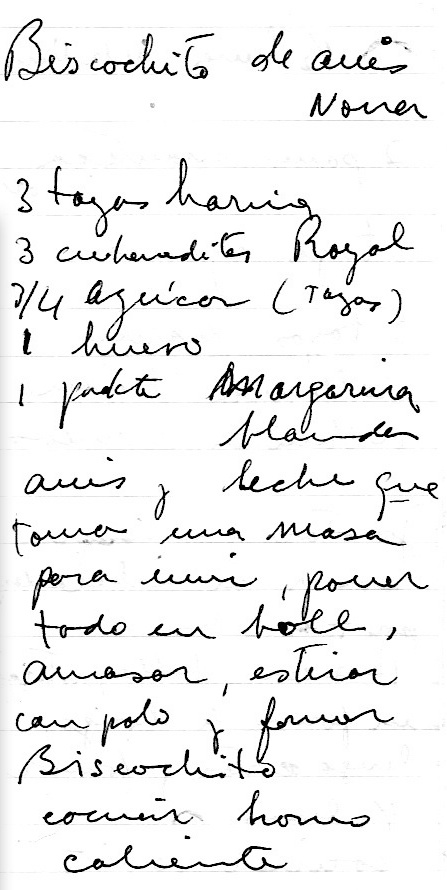 Biscochito de anis
Nona
3 tazas harina
3 cucharaditas Royal
3/4 azúcar (Tazas)
1 huevo
1 packete Margarina
blanda
anis y leche que
toma una masa
para unir, poner
todo en boll,
amasar, estirar
con palo y formar
Biscochito
cocneir horno
caliente